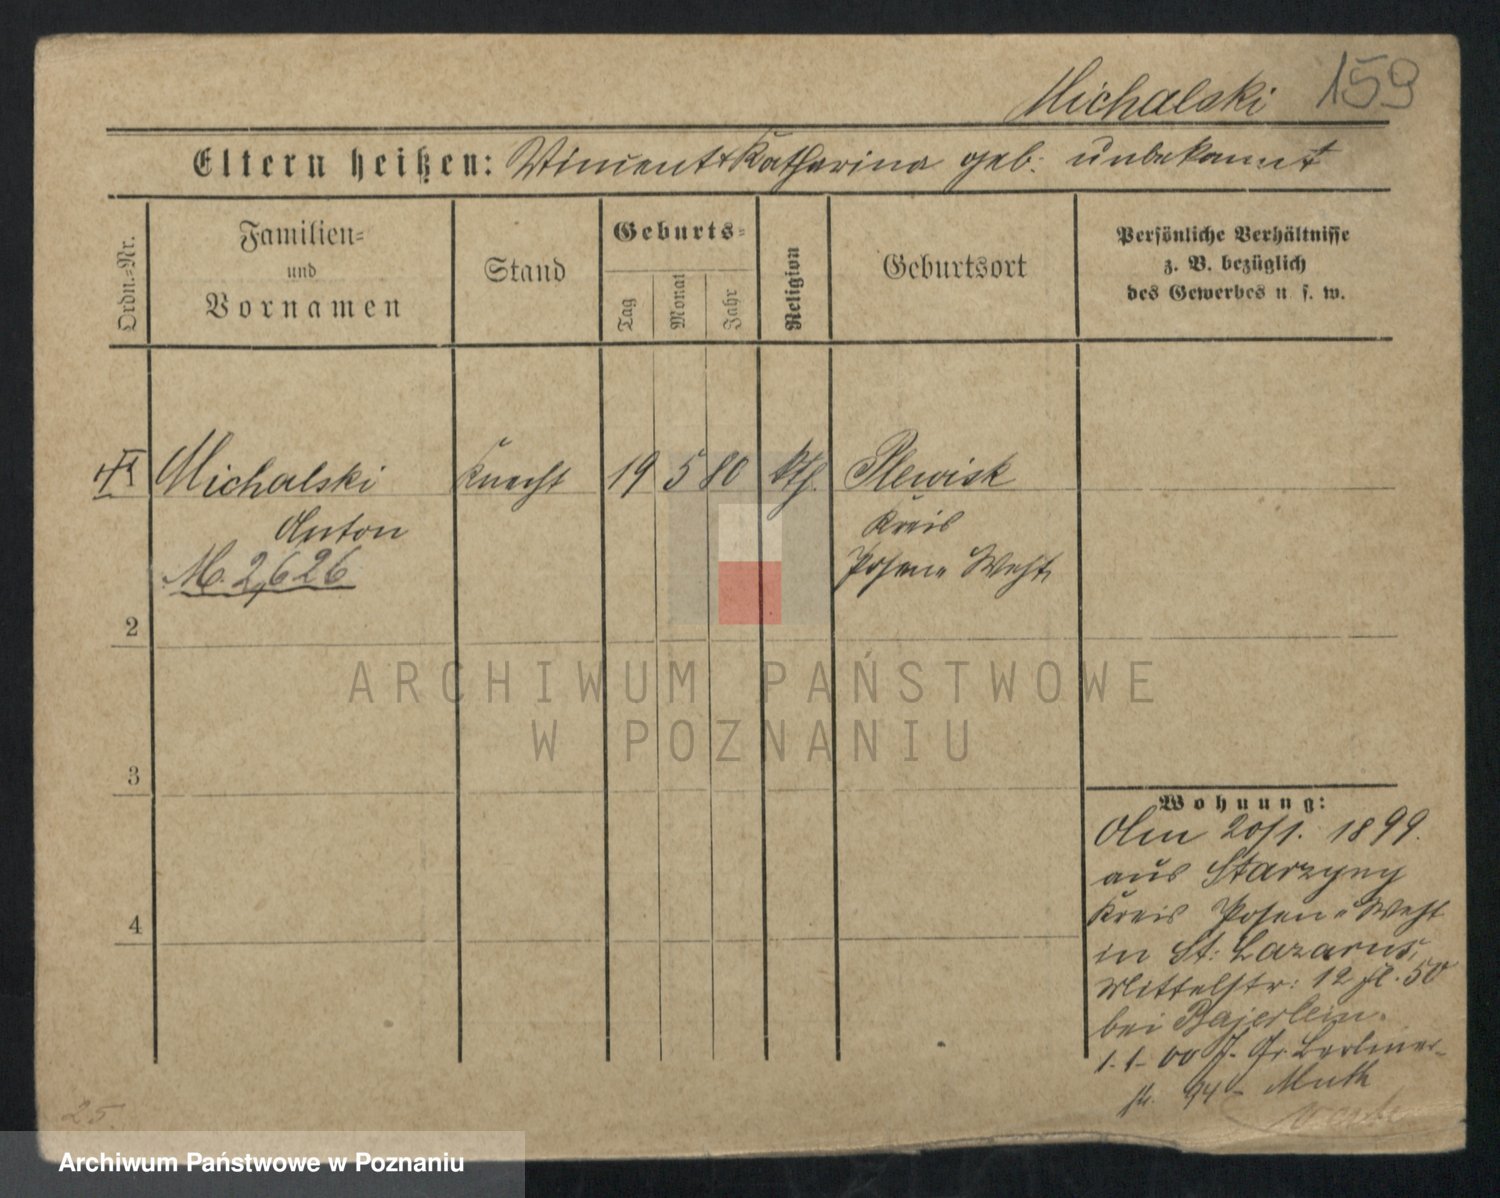 Michalski 159
Eltern heißen: Vincent + Katharina geb. unbekannt
Ordn.=Nr.
Familien=
und
Vornamen
Stand
Geburts=
Tag
Monat
Jahr
Religion
Geburtsort
Persönliche Verhältnisse
z. B. bezüglich
des Gewerbes u. s. w.
Michalski Knecht 19 5 80 kth. Plewisk
Anton Kreis
M. 2,626 Posen-West
2
3
4
Wohnung:
Am 20/1. 1899.
aus Starzyny
Kreis Posen-West
in St: Lazarus,
Mittelstr: 12 fl. 50
bei Bajerlein.
1.-1-00 J. Gr. Berliner-
str. 94 - Muth
25.
ARCHIWUM PAŃSTWOWE
W POZNANIU
Archiwum Państwowe w Poznaniu